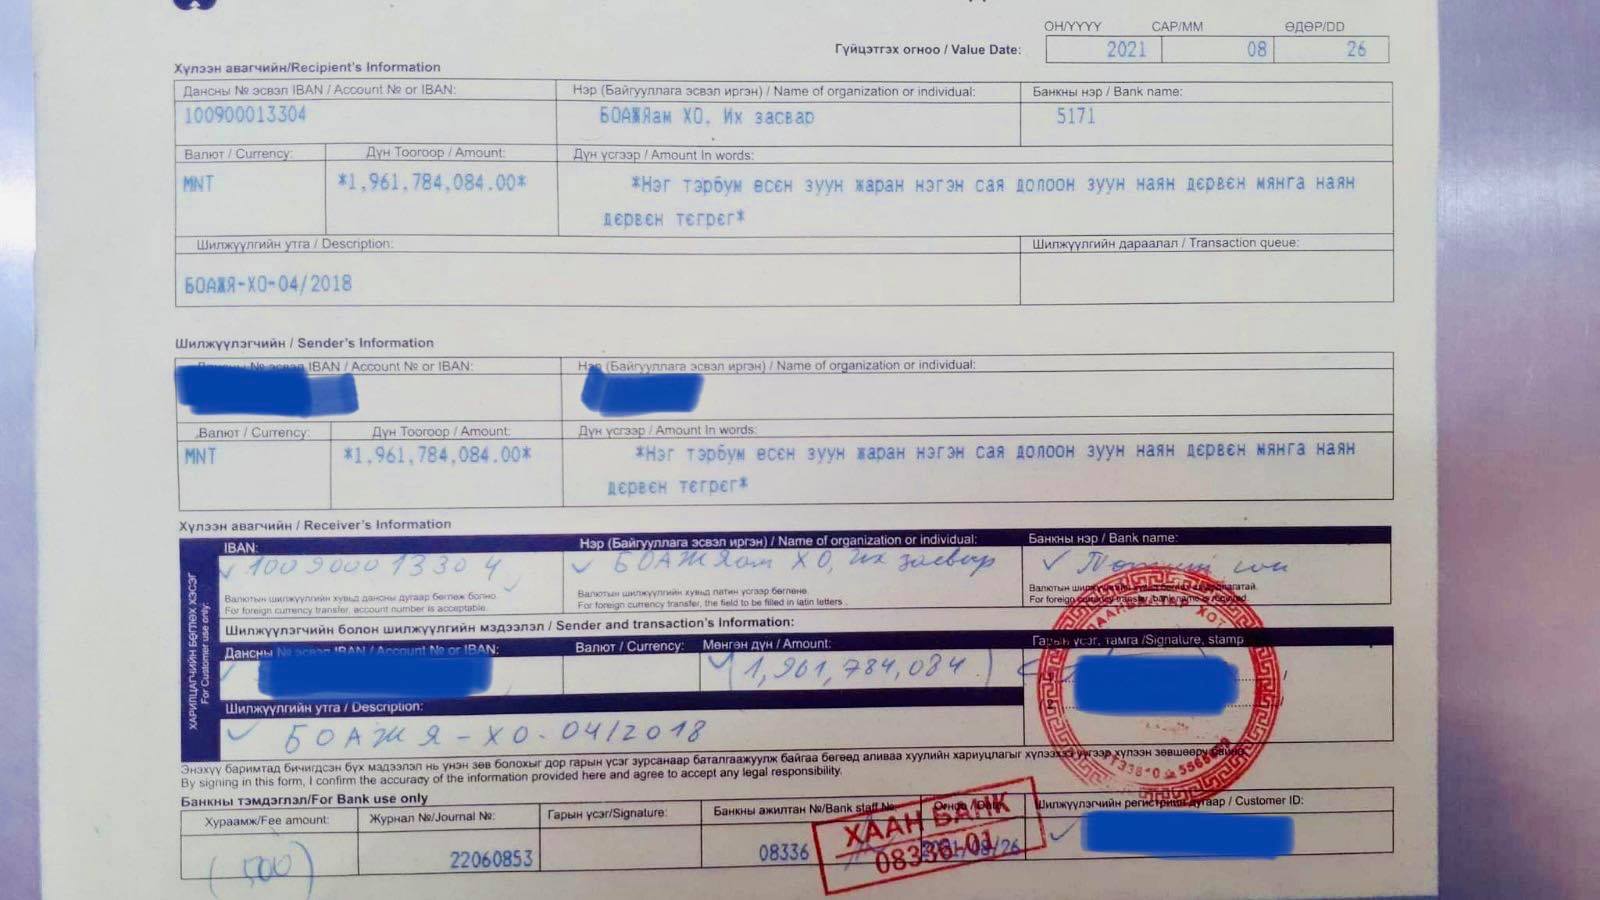 ОН/YYYY САР/MM ӨДӨР/DD
Гүйцэтгэх огноо / Value Date: 2021 08 26
Хүлээн авагчийн/Recipient's Information
Дансны № эсвэл IBAN / Account № or IBAN: Нэр (Байгууллага эсвэл иргэн) / Name of organization or individual: Банкны нэр / Bank name:
100900013304 БОАЖЯам ХО. Их засвар 5171
Валют / Currency: Дүн Тоогоор / Amount: Дүн үсгээр / Amount In words:
MNT *1,961,784,084.00* *Нэг тэрбум есєн зуун жаран нэгэн сая долоон зуун наян дєрвєн мянга наян
дєрвєн тєгрєг*
Шилжүүлгийн утга / Description: Шилжүүлгийн дараалал / Transaction queue:
БОАЖЯ-ХО-04/2018
Шилжүүлэгчийн / Sender's Information
IBAN / Account № or IBAN: Нэр (Байгууллага эсвэл иргэн) / Name of organization or individual:
Валют / Currency: Дүн Тоогоор / Amount: Дүн үсгээр / Amount In words:
MNT *1,961,784,084.00* *Нэг тэрбум есєн зуун жаран нэгэн сая долоон зуун наян дєрвєн мянга наян
дєрвєн тєгрєг*
Хүлээн авагчийн / Receiver's Information
IBAN: Нэр (Байгууллага эсвэл иргэн) / Name of organization or individual: Банкны нэр / Bank name:
100900013304 БОАЖЯам ХО, их засвар
Валютын шилжүүлгийн хувьд дансны дугаар бөглөж болно. Валютын шилжүүлгийн хувьд латин үсгээр бөглөнө.
For foreign currency transfer, account number is acceptable. For foreign currency transfer, the field to be filled in latin letters.
ХАРИЛЦАГЧИЙН БӨГЛӨХ ХЭСЭГ
For Customer use only:
Шилжүүлэгчийн болон шилжүүлгийн мэдээлэл / Sender and transaction's Information:
Дансны № эсвэл IBAN / Account № or IBAN: Валют / Currency: Мөнгөн дүн / Amount: Гарын үсэг, тамга /Signature, stamp
1,961,784,084
Шилжүүлгийн утга / Description:
БОАЖЯ-ХО-04/2018
Энэхүү баримтад бичигдсэн бүх мэдээлэл нь үнэн зөв болохыг дор гарын үсэг зурсанаар баталгаажуулж байгаа бөгөөд аливаа хуулийн хариуцлагыг хүлээхээ үүгээр хүлээн зөвшөөрч байна
By signing in this form, I confirm the accuracy of the information provided here and agree to accept any legal responsibility.
Банкны тэмдэглэл/For Bank use only
Хураамж/Fee amount: Журнал №/Journal №: Гарын үсэг/Signature: Банкны ажилтан №/Bank staff №: Огноо / Date Шилжүүлгийн регистрийн дугаар / Customer ID:
(500) 22060853 08336 2021/08/26
ХААН БАНК
08336-01